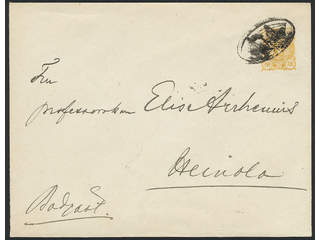 Fru
professorskan Elise Arrhenius
Heinola
Badgäst.